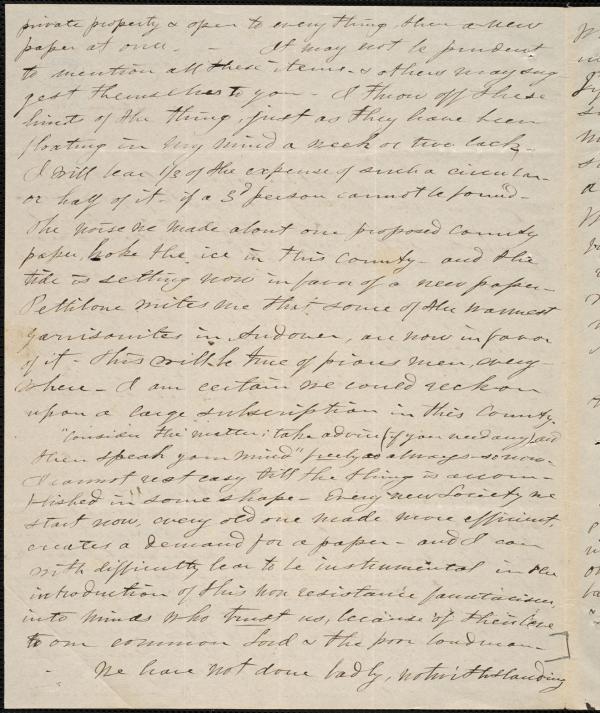 private property & open to every thing then a new
paper at once. - It may not be prudent
to mention all these items - & others may sug
gest themselves to you - I throw off these
hints of the thing, just as they have been
floating in my mind a week or two back.
I will bear 1/3 of the expense of such a circular -
or half of it - if a 3d person cannot be found -
The noise we made about one proposed County
paper, broke the ice in this County - and the
tide is setting now in favor of a new paper -
Pettibone writes me that some of the warmest
Garrisonites in Andover, are now in favor
of it - This will be true of pious men, every-
where - I am certain we could reckon
upon a large subscription in this County.
"Consider the matter; take advice (if you need any) and
then speak your mind" freely as always - so now -
I cannot rest easy till the thing is accom-
plished in some shape - Every new Society we
start now, every old one made more efficient,
creates a demand for a paper - and I can
with difficulty bear to be instrumental in the
introduction of this non resistance fanaticism,
into minds who trust us, because of their love
to our common Lord & the poor bondman -
- We have not done badly, notwithstanding